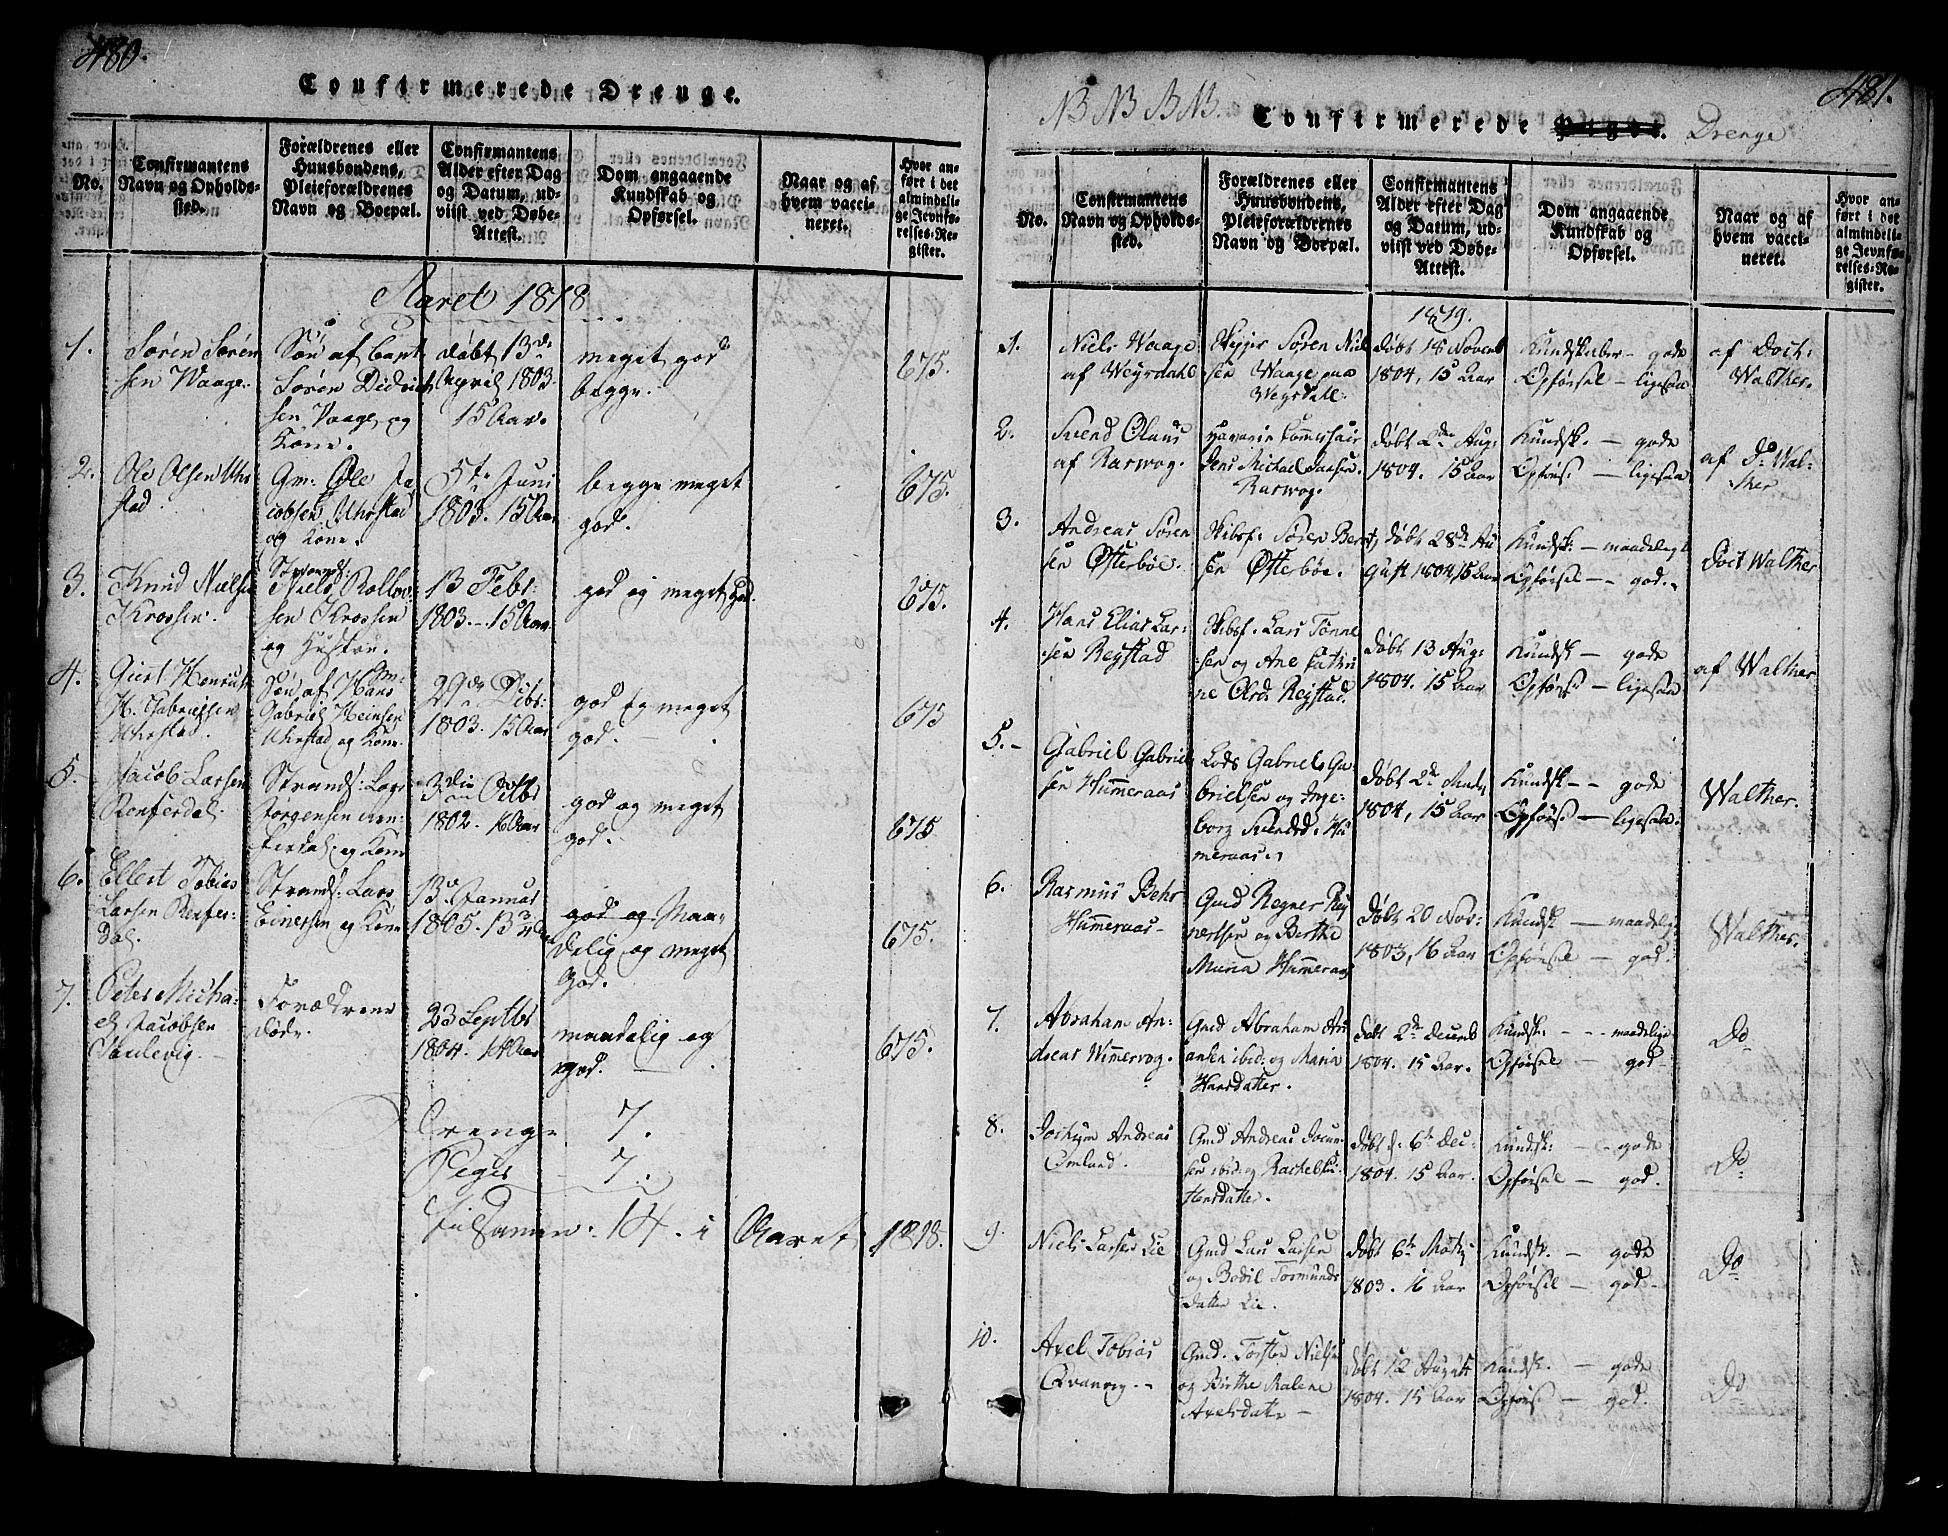 480.
Confirmerede Drenge.
No.
Confirmantens
Navn og Opholds-
sted.
Forældrenes eller
Huusbondens,
Pleieforældrenes
Navn og Boepæl.
Confirmantens
Alder efter Dag
og Datum, ud-
viist ved Døbe-
Attest.
Dom angaaende
Kundskab og
Opførsel.
Naar og af
hvem vacci-
neret.
Hvor an-
ført i det
almindeli-
ge Jevnfø-
relses-Re-
gister.
Aaret 1818
1.
Søren Søren
sen Waage.
Søn af Capt
Søren Didrich
sen Vaage og
Kone.
døbt 13de
April 1803.
15 Aar.
meget god
begge.
675.
2.
Ole Olsen Uhr
stad.
Gm. Ole Ja
cobsen Uhrstad
og Kone.
5te Juni
1803. 15 Aar
begge meget
god.
675.
3.
Knud Nielsen
Krossen.
Strands:
Niels Rollov
sen Krossen
og Hustru.
13 Febr:
1803. - 15 Aar
god og meget god.
675.
4.
Giert Henrich
H. Gabrielsen
Uhrstad.
Gm:
Søn af Hans
Gabriel Heinsen
Uhrstad og Kone.
29de Octbr:
1803. 15 Aar
god og meget
god.
675
5.
Jacob Larsen
Rensferdal.
Strands: Lars
Jørgensen Ren-
ferdal og Kone
3die Octbr
1802. 16 Aar
god og meget
god.
675
6.
Ellert Tobias
Larsen Renfer-
dal.
Strands: Lars
Einersen og Kone
13de Januar
1805. 13 3/4
god og Maa-
delig og meget
God.
675.
7.
Peter Micha-
el Jacobsen
Paulevig.
Forældrene
døde.
23 Septbr
1804. 14 Aar
maadelig og
god.
675.
Drenge 7.
Piger - 7.
tilsamen: 14. i Aaret 1818.
481.
NB NB NB NB. Confirmerede Piger. Drenge
No.
Confirmantens
Navn og Opholds-
sted.
Forældrenes eller
Huusbondens,
Pleieforældrenes
Navn og Boepæl.
Confirmantens
Alder efter Dag
og Datum, ud-
viist ved Døbe-
Attest.
Dom angaaende
Kundskab og
Opførsel.
Naar og af
hvem vacci-
neret.
Hvor an-
ført i det
almindeli-
ge Jevnfø-
relses-Re-
gister.
1819.
1.
Niels Waage
af Weyrdahl
Skipper Søren Niel
sen Waage paa
Weysdall.
Døbt 18 Novemb
1804, 15 Aar
Kundskaber - gode
Opførsel - ligesaa
af Doct:
Walther.
2.
Svend Olaus
af Rarwog.
Havarie Commissair
Jens Michael
Rarwog.
Døbt 2den Aug:
1804. 15 Aar
Kundsk. - gode
Opførs: - ligesaa
af Do Wal-
ther
3.
Andreas Søren
sen Østerbøe.
Skibsf: Søren Bernt
sen Østerbøe.
døbt 28de Au
gust 1804, 15 Aar
Kundsk: - maadelige
Opførsel - god.
Doct Walther
4.
Hans Elias Lar-
sen Reystad
Skibsf. Lars Tønne
sen og Ane Cathri
ne Olsd. Reystad.
Døbt 13 Aug:
1804. 15 Aar
Kundsk - gode
Opførs: - ligesaa
af Walther
5.
Gabriel Gabriel
sen Hummeraas
Lods Gabriel Ga
brielsen og Inge-
borg Svendsd: Hu
meraas.
Døbt 2de
1804, 15 Aar
Kundsk - - gode
Opførs: - ligesaa.
Walther.
6.
Rasmus Behr
Hummeraas -
Gmd Regner Rey
nertsen og Berthe
Maria Hummeraas
Døbt 20 Nov:
1803, 16 Aar
Kundsk - maadelig
Opførsel - god.
Walther.
7.
Abraham An-
dreas Wimmervog.
Gmd Abraham
ansen ibid: og Maria
Hansdatter.
Døbt 2de Decemb
1804. 15 Aar.
Kundsk: - - - maadelige
Opførsel - god -
Do
8.
Jochum Andreas
Omland.
Gmd Andreas Jocum
sen ibid: og Rachel
Hansdatter.
Døbt d: 6te Dec:
1804. 15 Aar.
Kundsk: - - gode
Opførsel - god.
Do
9.
Niels Larsen Lie
Gmd Lars Larsen
og Bodil Tormunds
datter Lie.
Døbt 6te Martz
1803. 16 Aar
Kundsk. - gode
Opførsel - god -
Do
10.
Axel Tobias
Qvanvig. -
Gmd. Torsten Nielsen
og Birthe Malene
Axelsdatter -
Døbt 12 August
1804. 15 Aar
Kundsk. - gode
Opførs - god.
Do